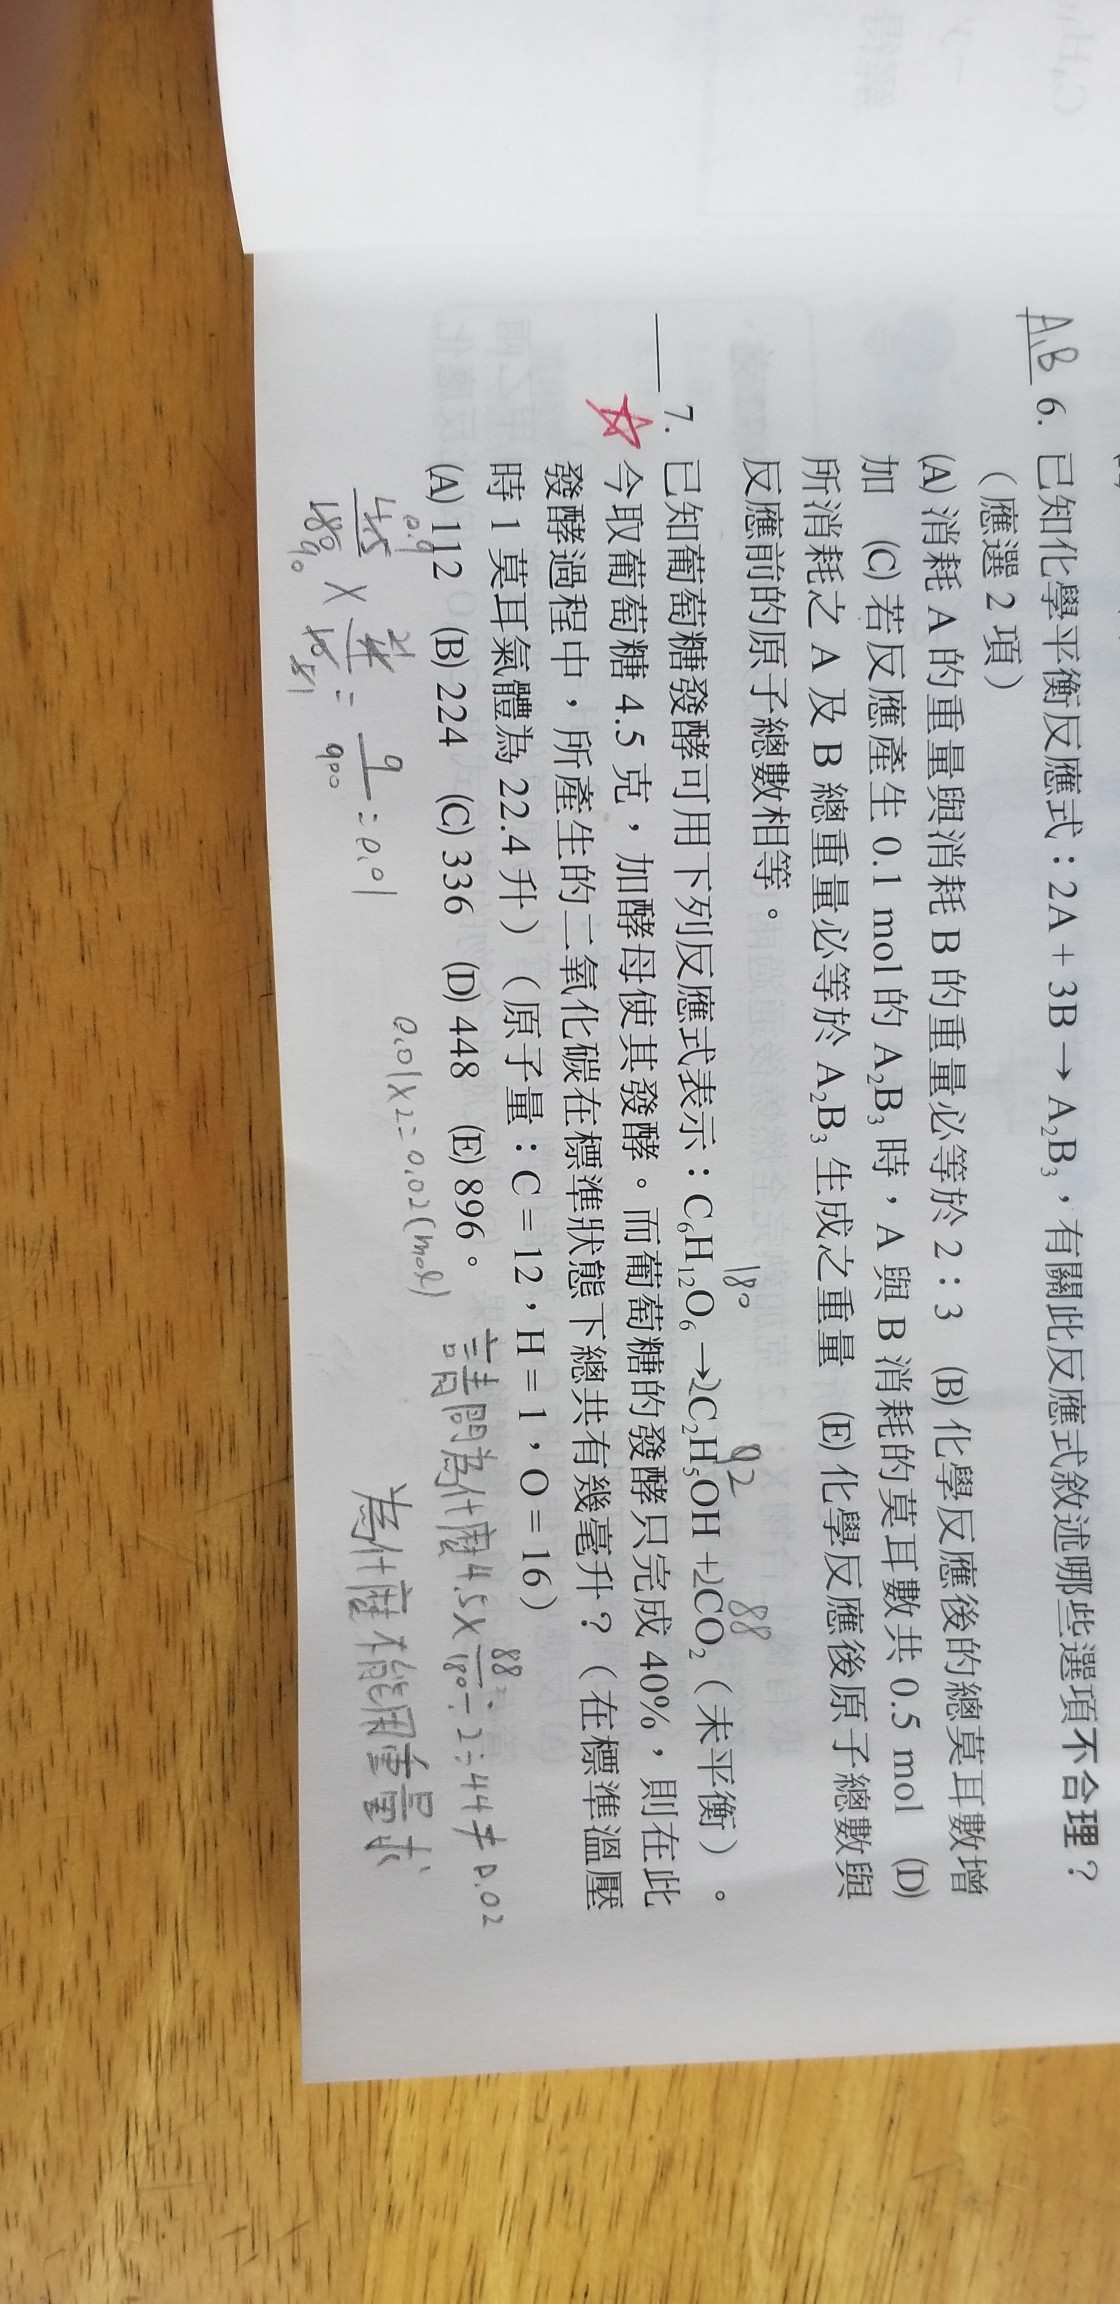 A,B 6. 已知化學平衡反應式：2A + 3B → A₂B₃，有關此反應式敘述哪些選項不合理？
（應選 2 項）
(A) 消耗 A 的重量與消耗 B 的重量必等於 2：3 (B) 化學反應後的總莫耳數增
加 (C) 若反應產生 0.1 mol 的 A₂B₃ 時，A 與 B 消耗的莫耳數共 0.5 mol (D)
所消耗之 A 及 B 總重量必等於 A₂B₃ 生成之重量 (E) 化學反應後原子總數與
反應前的原子總數相等。
180 92 88
7. 已知葡萄糖發酵可用下列反應式表示：C₆H₁₂O₆ →2C₂H₅OH +2CO₂（未平衡）。
今取葡萄糖 4.5 克，加酵母使其發酵。而葡萄糖的發酵只完成 40%，則在此
發酵過程中，所產生的二氧化碳在標準狀態下總共有幾毫升？（在標準溫壓
時 1 莫耳氣體為 22.4 升）（原子量：C = 12，H = 1，O = 16）
(A) 112 (B) 224 (C) 336 (D) 448 (E) 896。
請問為什麼 4.5 × 88/180 ÷ 2 ÷ 44 ≠ 0.02
= 9/900 = 0.01
0.01 × 2 = 0.02 (mol)
為什麼不能用重量求